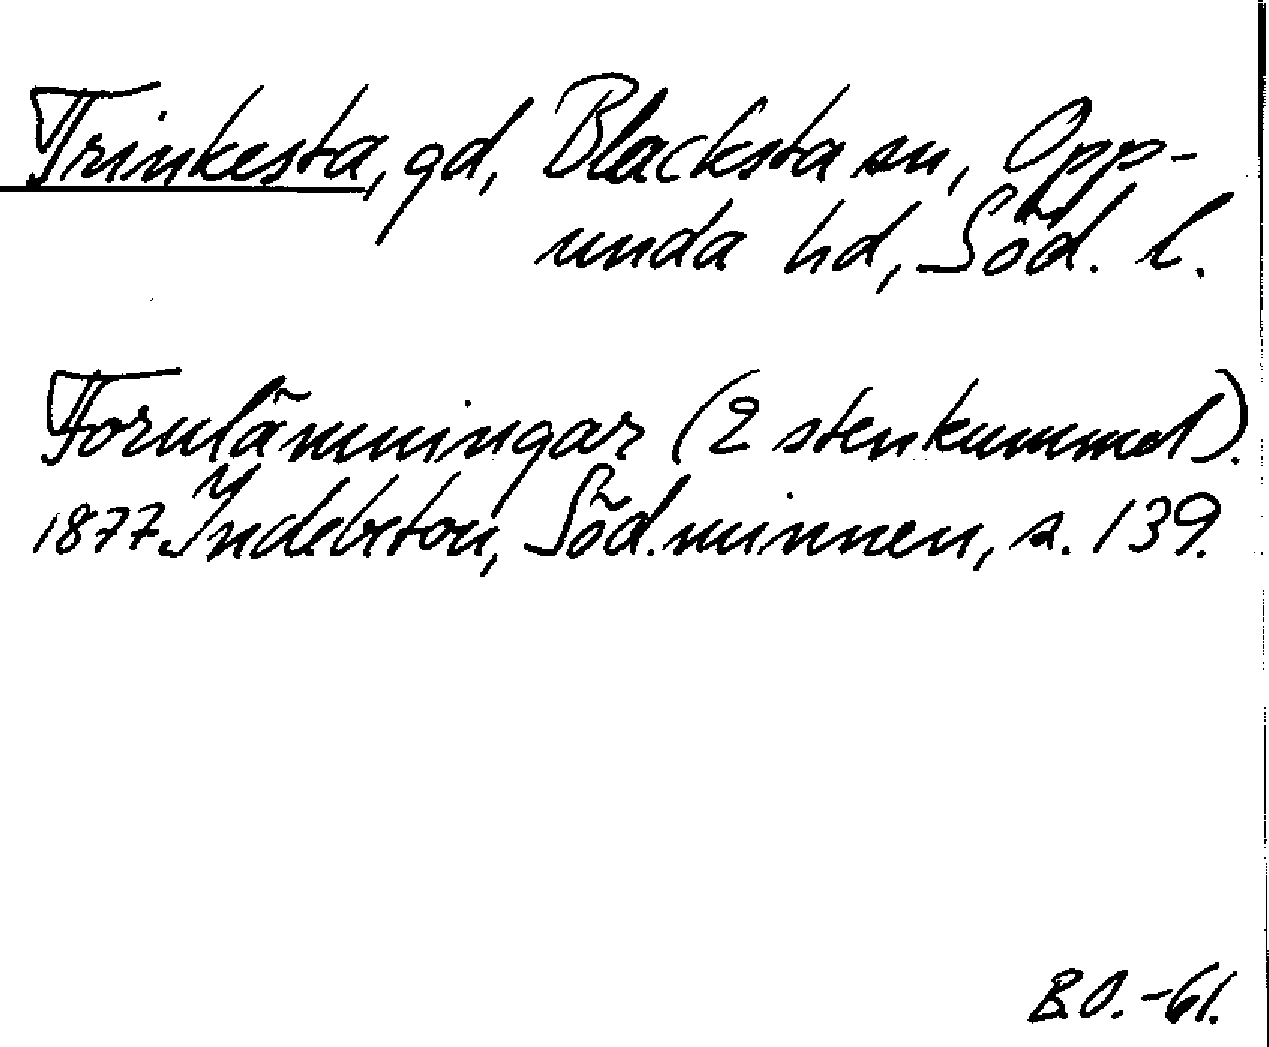 Trinkesta, gd, Blacksta sn, Opp-
unda hd, Söd. l.
Fornlämningar (2 stenkummel).
1877 Indebetou, Söd. minnen, s. 139.
B.O. -61.